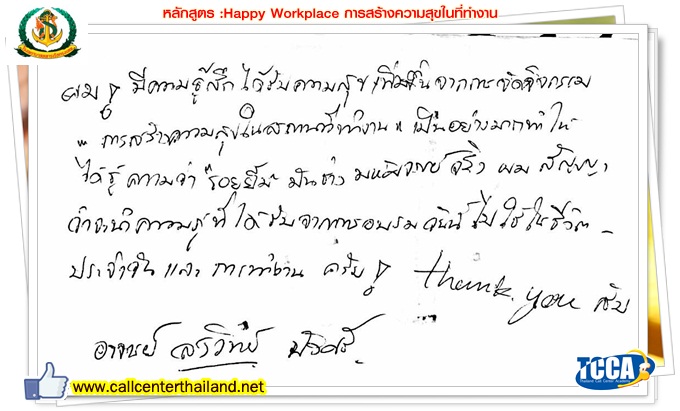 หลักสูตร :Happy Workplace การสร้างความสุขในที่ทำงาน
ผม มีความรู้สึก ได้รับความสุขเพิ่มขึ้นจากการจัดกิจกรรม
"การสร้างความสุขในสถานที่ทำงาน" เป็นอย่างมากทำให้
ได้รู้ ความว่า "รอยยิ้ม" มันช่าง มหัศจรรย์ จริงๆ ผม สัญญา
ว่าจะนำความรู้ที่ได้รับจากการอบรม วันนี้ ไป ใช้ในชีวิต-
ประจำวัน และ การทำงาน ครับ thank you
อาจารย์
www.callcenterthailand.net
TCCA
Thailand Call Center Academy